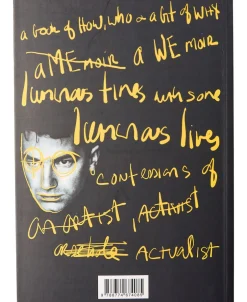 a book of How, Who & a bit of WHY
a MEmoir a WE moir
luminous times with some
luminous lives
confessions of
an artist, Activist
Actualist
9788774074069